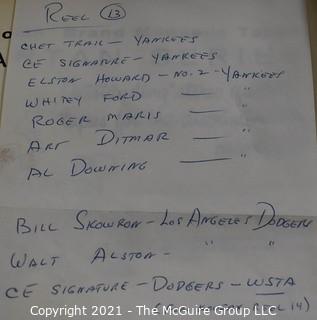 REEL 13
CHET TRAIL - YANKEES
CE SIGNATURE - YANKEES
ELSTON HOWARD - NO. 2 - YANKEES
WHITEY FORD — "
ROGER MARIS — "
ART DITMAR — "
AL DOWNING — "
BILL SKOWRON - LOS ANGELES DODGERS
WALT ALSTON - " "
CE SIGNATURE - DODGERS - WSTA
REEL 14)
Copyright © 2021 - The McGuire Group LLC